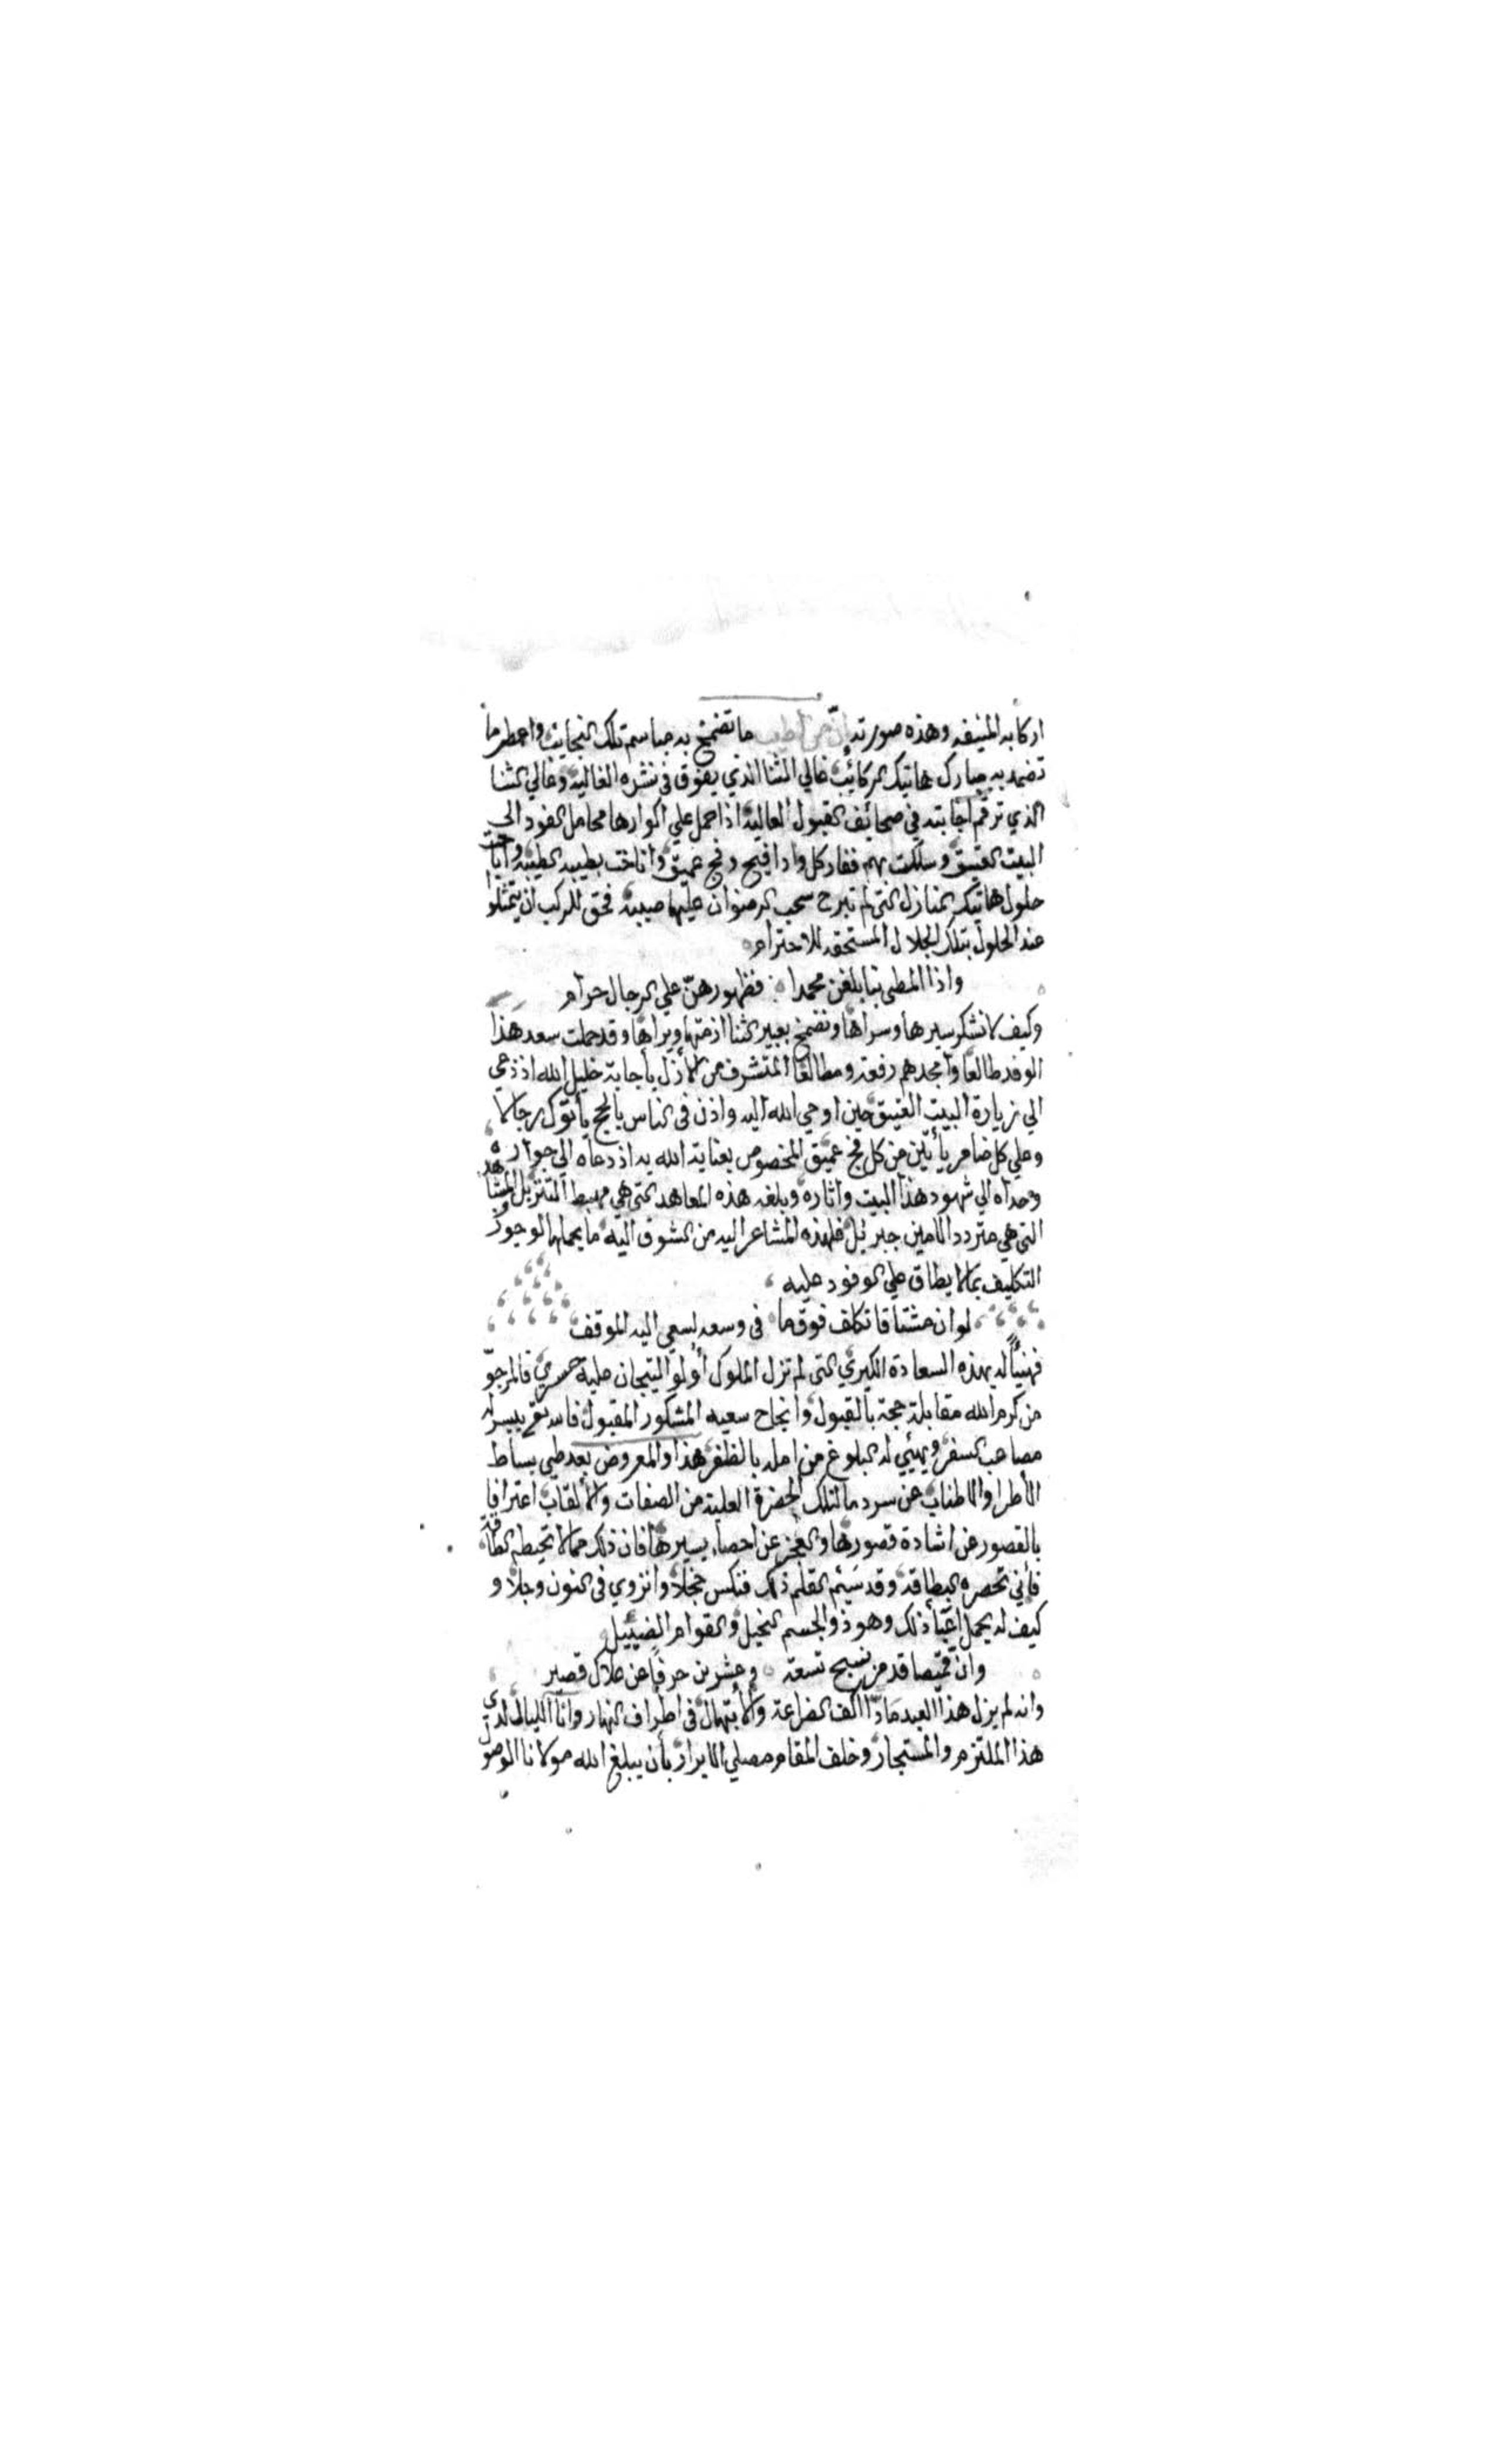 اركابه المنيفه وهذه صورته إنّ من أطيب ما تضمخ به مباسم تلك النجايب واعطر ما
تضمد به مبارك هاتيك الركائب غالي الثنا الذي يفوق في نشره الغالية وغالي الثنا
الذي ترقم اجابته في صحائف القبول العالية اذا حمل علي اكوارها محامل الفود الي
البيت العتيق وسلكت بهم فغار كل واد افيح وفج عميق واناخت بطيبه الطيبه واباحت
حلول هاتيك المنازل التي لم تبرح سحب الرضوان عليها صيبة فحق للركب ان يتمثلوا
عند الحلول بتلك الجلال المستحقه للاحترام
واذا المطي بنا بلغن محمدا فظهورهنّ علي الرجال حرام
وكيف لا نشكر سيرها وسراها ونضمخ بعبير الثنا ازمتها وبراها وقد حملت سعد هذا
الوفد طالعًا وامجدهم رفعة ومطالعًا المتشرف من الأزل بأجابة خليل الله اذ دعي
الي زيارة البيت العتيق حين اوحي الله اليه واذن في الناس بالحج يأتوك رجالا
وعلي كل ضامر يأتين من كل فج عميق المخصوص بعناية الله به اذ دعاه الي جواره
وحداه الي شهود هذا البيت واثاره وبلغه هذه المعاهد التي هي مهبط التنزيل والمشاهد
التي هي متردد الامين جبرئيل فلهذه المشاعر اليه من الشوق اليه ما يحملها لو جوز
التكليف بما لا يطاق علي الوفود عليه
لو ان مشتاقا تكلف فوق ما في وسعه لسعي اليه الموقف
فهنيئًا له بهذه السعادة الكبري التي لم تزل الملوك أولو التيجان عليه حسري فالمرجوّ
من كرم الله مقابلة حجة بالقبول وانجاح سعيه المشكور المقبول فالله تع ييسر له
مصاعب السفر ويهيئ له البلوغ من امله بالظفر هذا والمعروض بعد طي بساط
الأطرا والاطناب عن سرد ما لتلك الحضرة العلية من الصفات والألقاب اعترافا
بالقصور عن اشادة قصورها والعجز عن احصاء يسيرها فان ذلك مما لا تحيطه الطاقة
فأني تحصره البطاقه وقد سَئِم القلم ذلك فنكس خجلا وانزوي في النون وجلا و
كيف له يحمل اعبأ ذلك وهو ذو الجسم النحيل والقوام الضئيل
وانّ قميصا قد من نسج تسعة وعشرين حرفًا عن علاك قصير
وانه لم يزل هذا العبد مَادًّا اكف الضراعة والأبتهال في اطراف النهار واناا الليال لدي
هذا الملتزم والمستجار وخلف المقام مصلي الابرار بأن يبلغ الله مولانا الوصو